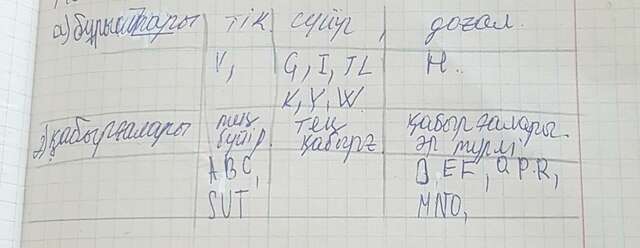 а) бұрыштары тік сүйір, доғал.
V, G, I, JL H.
K, Y, W
ә) қабырғалары тең бүйір. тең қабырғ қабырғалары әр түрлі
ABC, D, EF, Q.P.R,
SUT MNO,